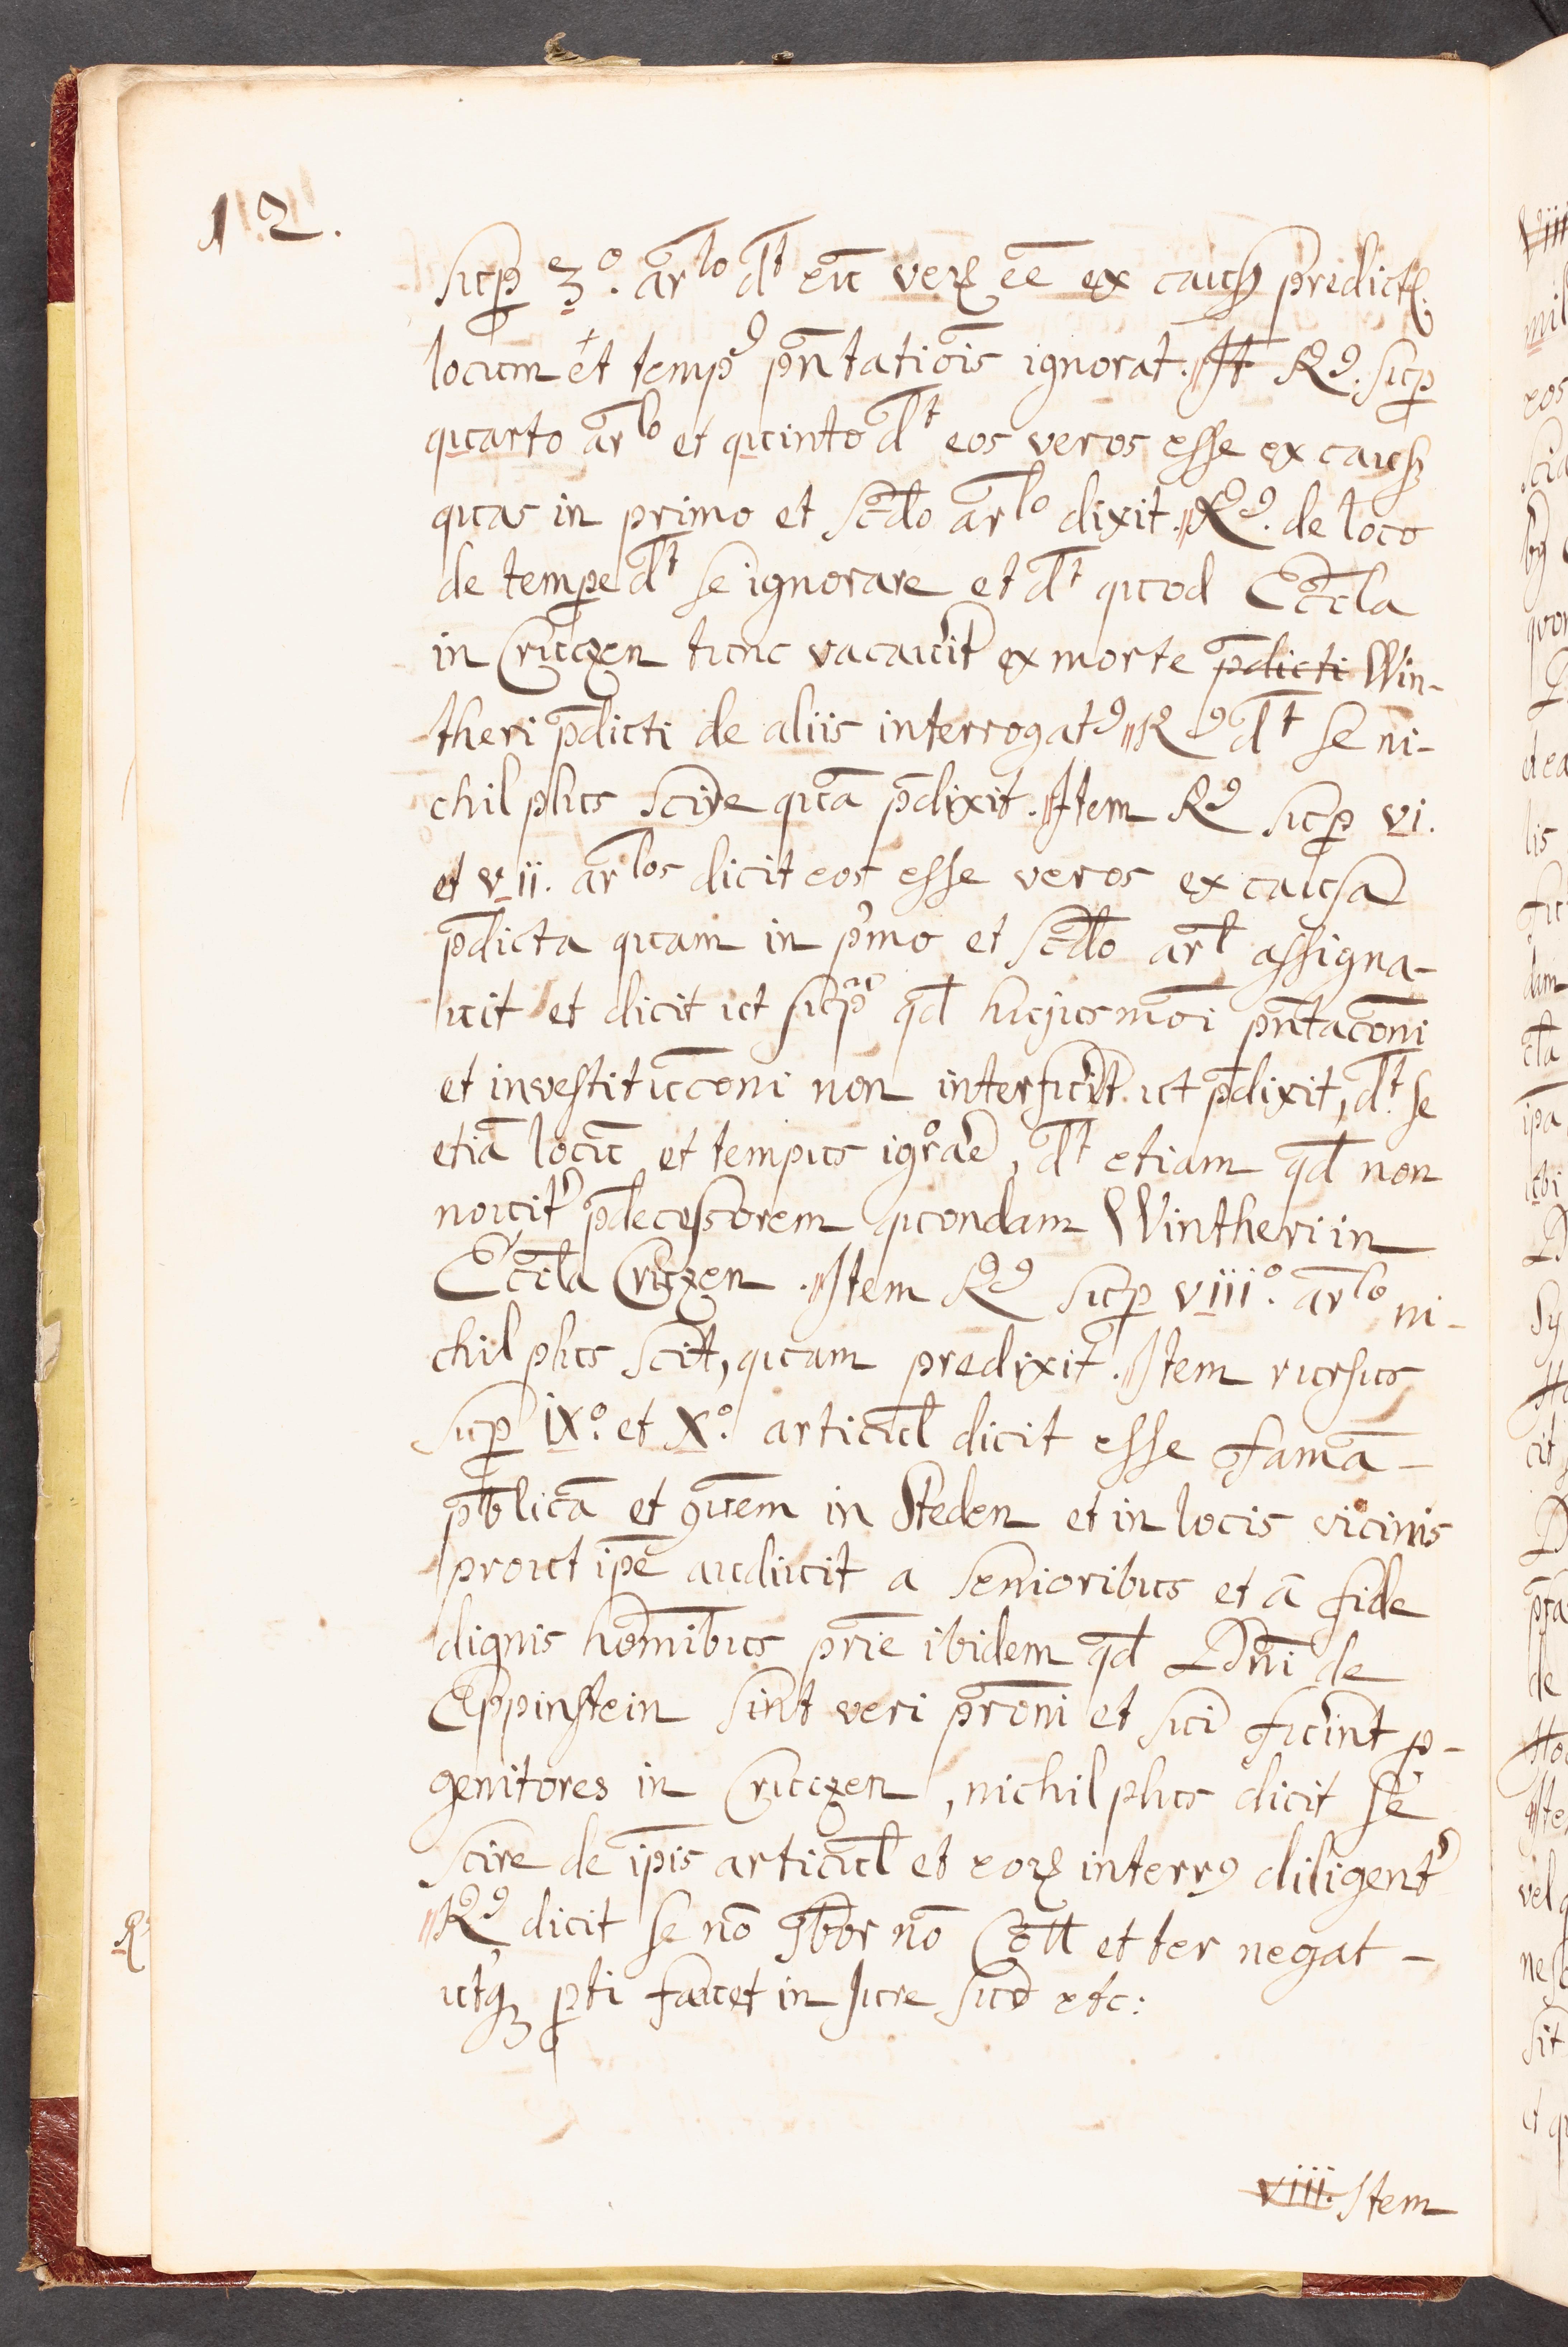 12.
sup̱ 3º. ar̄lo d̄t eū verꝝ ēe ex causꝫ predictꝭ.
locum et tempꝰ pn̄tatiōis ignorat. It Rꝰ. sup̱
quarto ar̄lo et quinto d̄t eos veros esse ex causꝫ
quas in primo et sc̄do ar̄lo dixit. Rꝰ. de loco
de tempe d̄t se ignorare et d̄t quod Ecc̄la
in Cruczen tunc vacauit ex morte p̄dicti Win-
theri p̄dicti de aliis interrogatꝰ Rꝰ d̄t se ni-
chil plus scire quā p̄dixit. Item Rꝰ sup̱ vi.
et vii. ar̄los dicit eos esse veros ex causa
p̄dicta quam in pͥmo et sc̄do ar̄l assigna-
uit et dicit ut supᵃ qd̄ hujusmōi pn̄tacōni
et investitucōni non interfuit ut p̄dixit, d̄t. se
etiā locū et tempus igͦrae, d̄t etiam qd̄ non
nouit p̄decessorem quondam Wintheri in
Ecc̄la Cruczen. Item Rꝰ sup̱ viiiº. ar̄lo ni-
chil plus scit, quam predixit. Item rursus
sup̱ ixº. et Xº. articul̄ dicit esse famā
pb̄licā et ꝯuem̄ in Steden et in locis vicinis
prout ip̄e audiuit a senioribus et a fide
dignis homi̅bus pr̄ie ibidem qd̄ Dn̄i de
Eppinstein sint veri pr̄oni et sui fuint p̱-
genitores in Cruczen, nichil plus dicit se
scire de ip̄is articul̄ et eorꝝ interrꝰ diligentꝰ
Rꝰ dicit se nō Sb̄or nō Cōll et ter negat
utqꝫ p̱ti fauet in Jure suo etc:
viii. Item